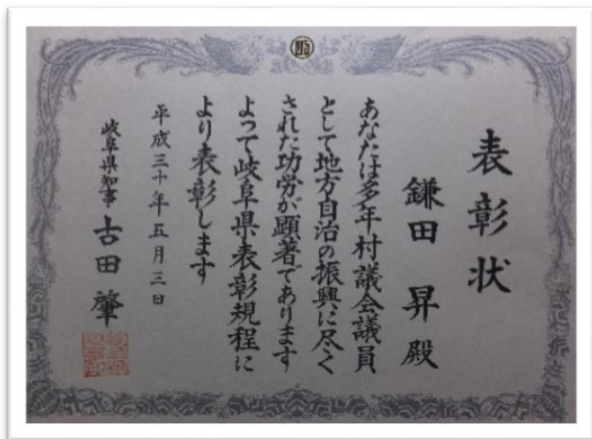 表彰状
鎌田 昇 殿
あなたは多年村議会議員
として地方自治の振興に尽く
された功労が顕著であります
よって岐阜県表彰規程に
より表彰します
平成三十年五月三日
岐阜県知事 古田 肇